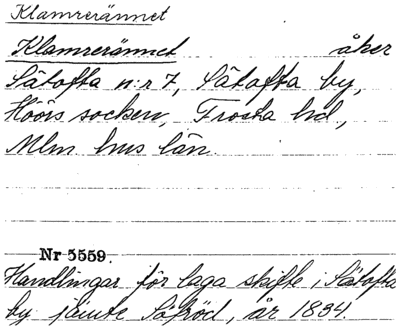 Klamrerännet
Klamrerännet åker
Sätofta n:r 7, Sätofta by,
Höörs socken, Frosta hd,
Mlm hus län.
Nr 5559.
Handlingar för laga skifte i Sätofta
by jämte Säfröd, år 1834.